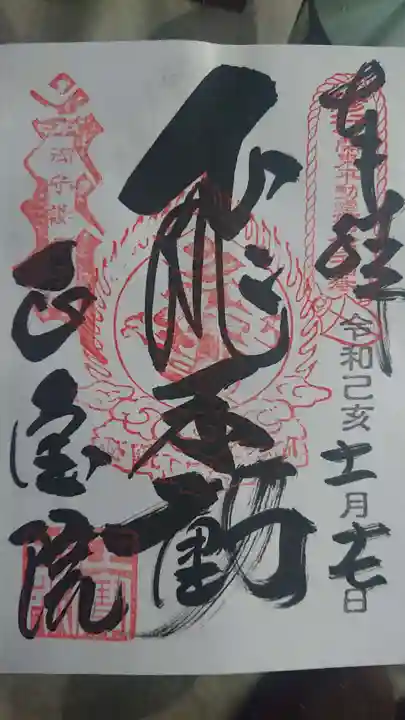 奉拝
令和己亥十一月十七日
飛不動
正宝院